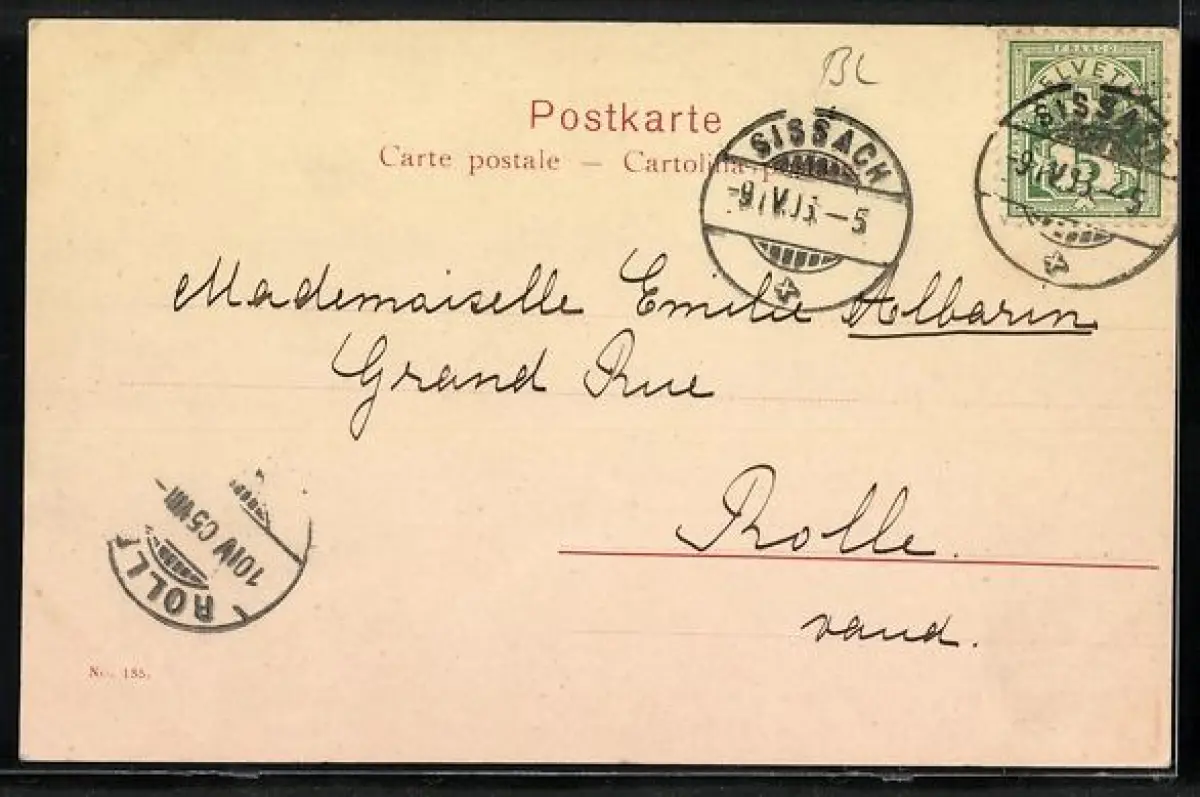 BL
FRANCO
HELVETIA
Postkarte
Carte postale — Cartolina
SISSACH
-9.IV.05.-5
SISSACH
-9.IV.05.-5
Mademoiselle Emilie Albarin
Grand Rue
Rolle.
vaud.
ROLLE
10 IV 05 VIII-
No. 135.